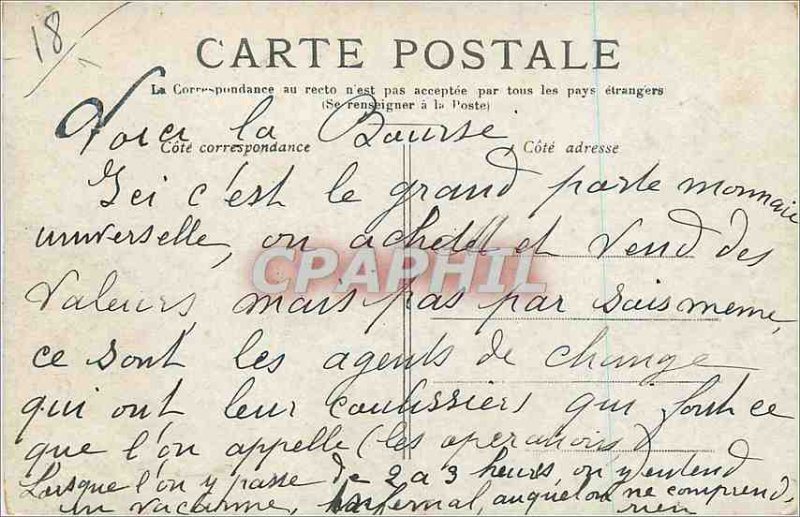 18
CARTE POSTALE
La Correspondance au recto n'est pas acceptée par tous les pays étrangers
(Se renseigner à la Poste)
Voici la Bourse
Côté correspondance
Côté adresse
Ici c'est le grand porte monnaie
universelle, on achete et vend des
CPAPHIL
Valeurs, mais pas par soismeme,
ce sont les agents de change
qui ont leur coulissiers qui font ce
que l'on appelle (les operations)
Lorsque l'on y passe de 2 a 3 heures, on y entend
un vacarme, infernal, auquel on ne comprend
rien